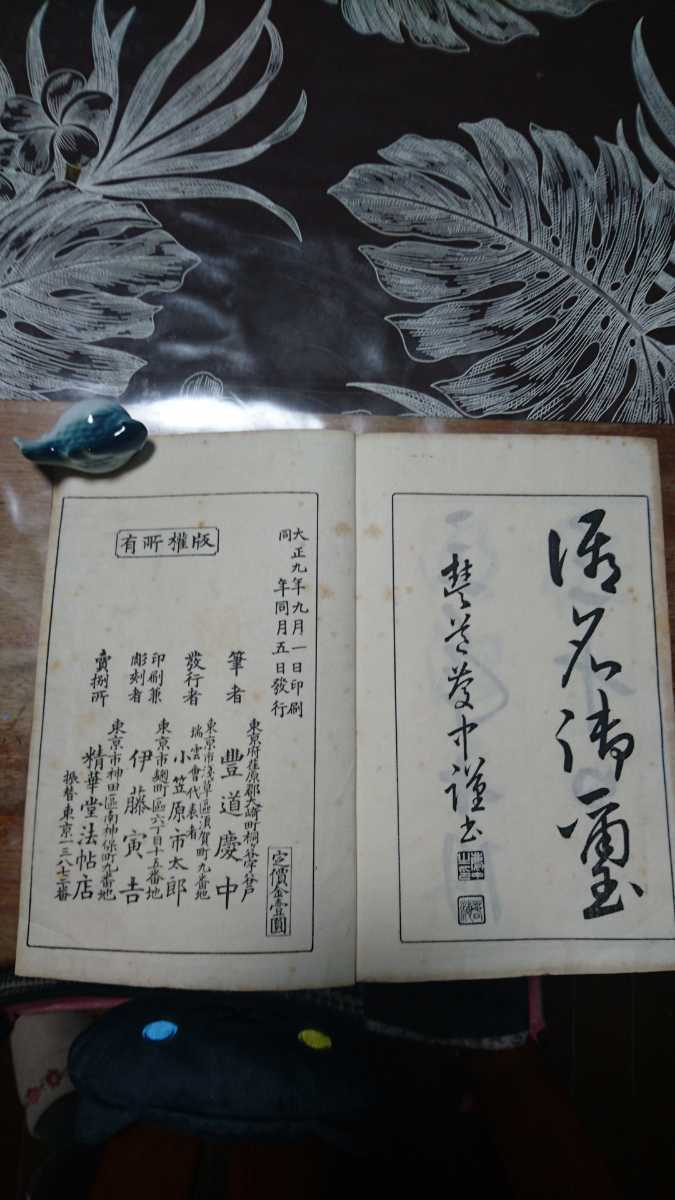 御名御璽
豊道慶中謹書
大正九年九月一日印刷
同年同月五日發行
定價金壹圓
東京府荏原郡大崎町桐ヶ谷
筆者 豐道慶中
東京市淺草區須賀町九番地
瑞雲會代表者
發行者 小笠原市太郎
東京市麹町區六丁目十五番地
印刷兼彫刻者 伊藤寅吉
東京市神田區南神保町九番地
賣捌所 精華堂法帖店
振替東京一三八七二番
版權所有